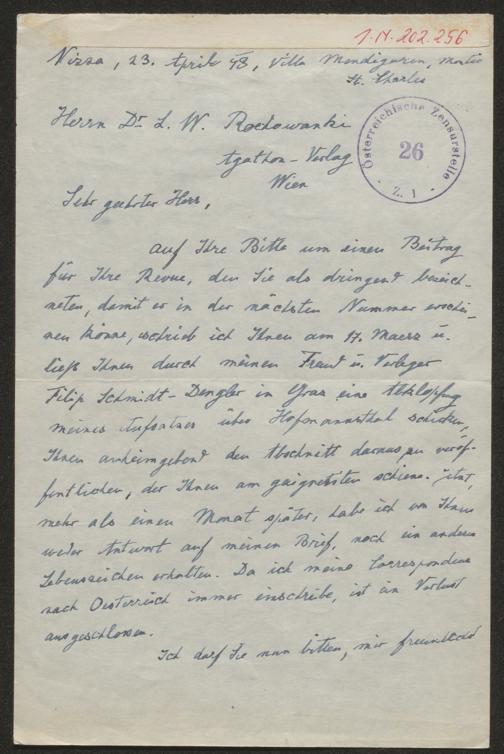 1.N.202.256
Nizza, 23. April 48, Villa Mendiguren,
St. Charles
Österreichische Zensurstelle
26
Z. 1
Herrn Dr L. W. Rochowanski
Agathon-Verlag
Wien
Sehr geehrter Herr,
auf Ihre Bitte um einen Beitrag
für Ihre Revue, den Sie als dringend bezeich-
neten, damit er in der nächsten Nummer erschei-
nen könne, schrieb ich Ihnen am 17. Maerz u.
ließ Ihnen durch meinen Freund u. Verleger
Filip Schmidt-Dengler in Graz eine
meines Aufsatzes über Hofmannsthal schicken,
Ihnen anheimgebend den Abschnitt daraus zu veröf-
fentlichen, der Ihnen am geeignetsten schiene. Jetzt,
mehr als einen Monat später, habe ich von Ihnen
weder Antwort auf meinen Brief, noch ein anderes
Lebenszeichen erhalten. Da ich meine Correspondenz
nach Oesterreich immer einschreibe, ist ein Verlust
ausgeschlossen.
Ich darf Sie nun bitten, mir freundlichst